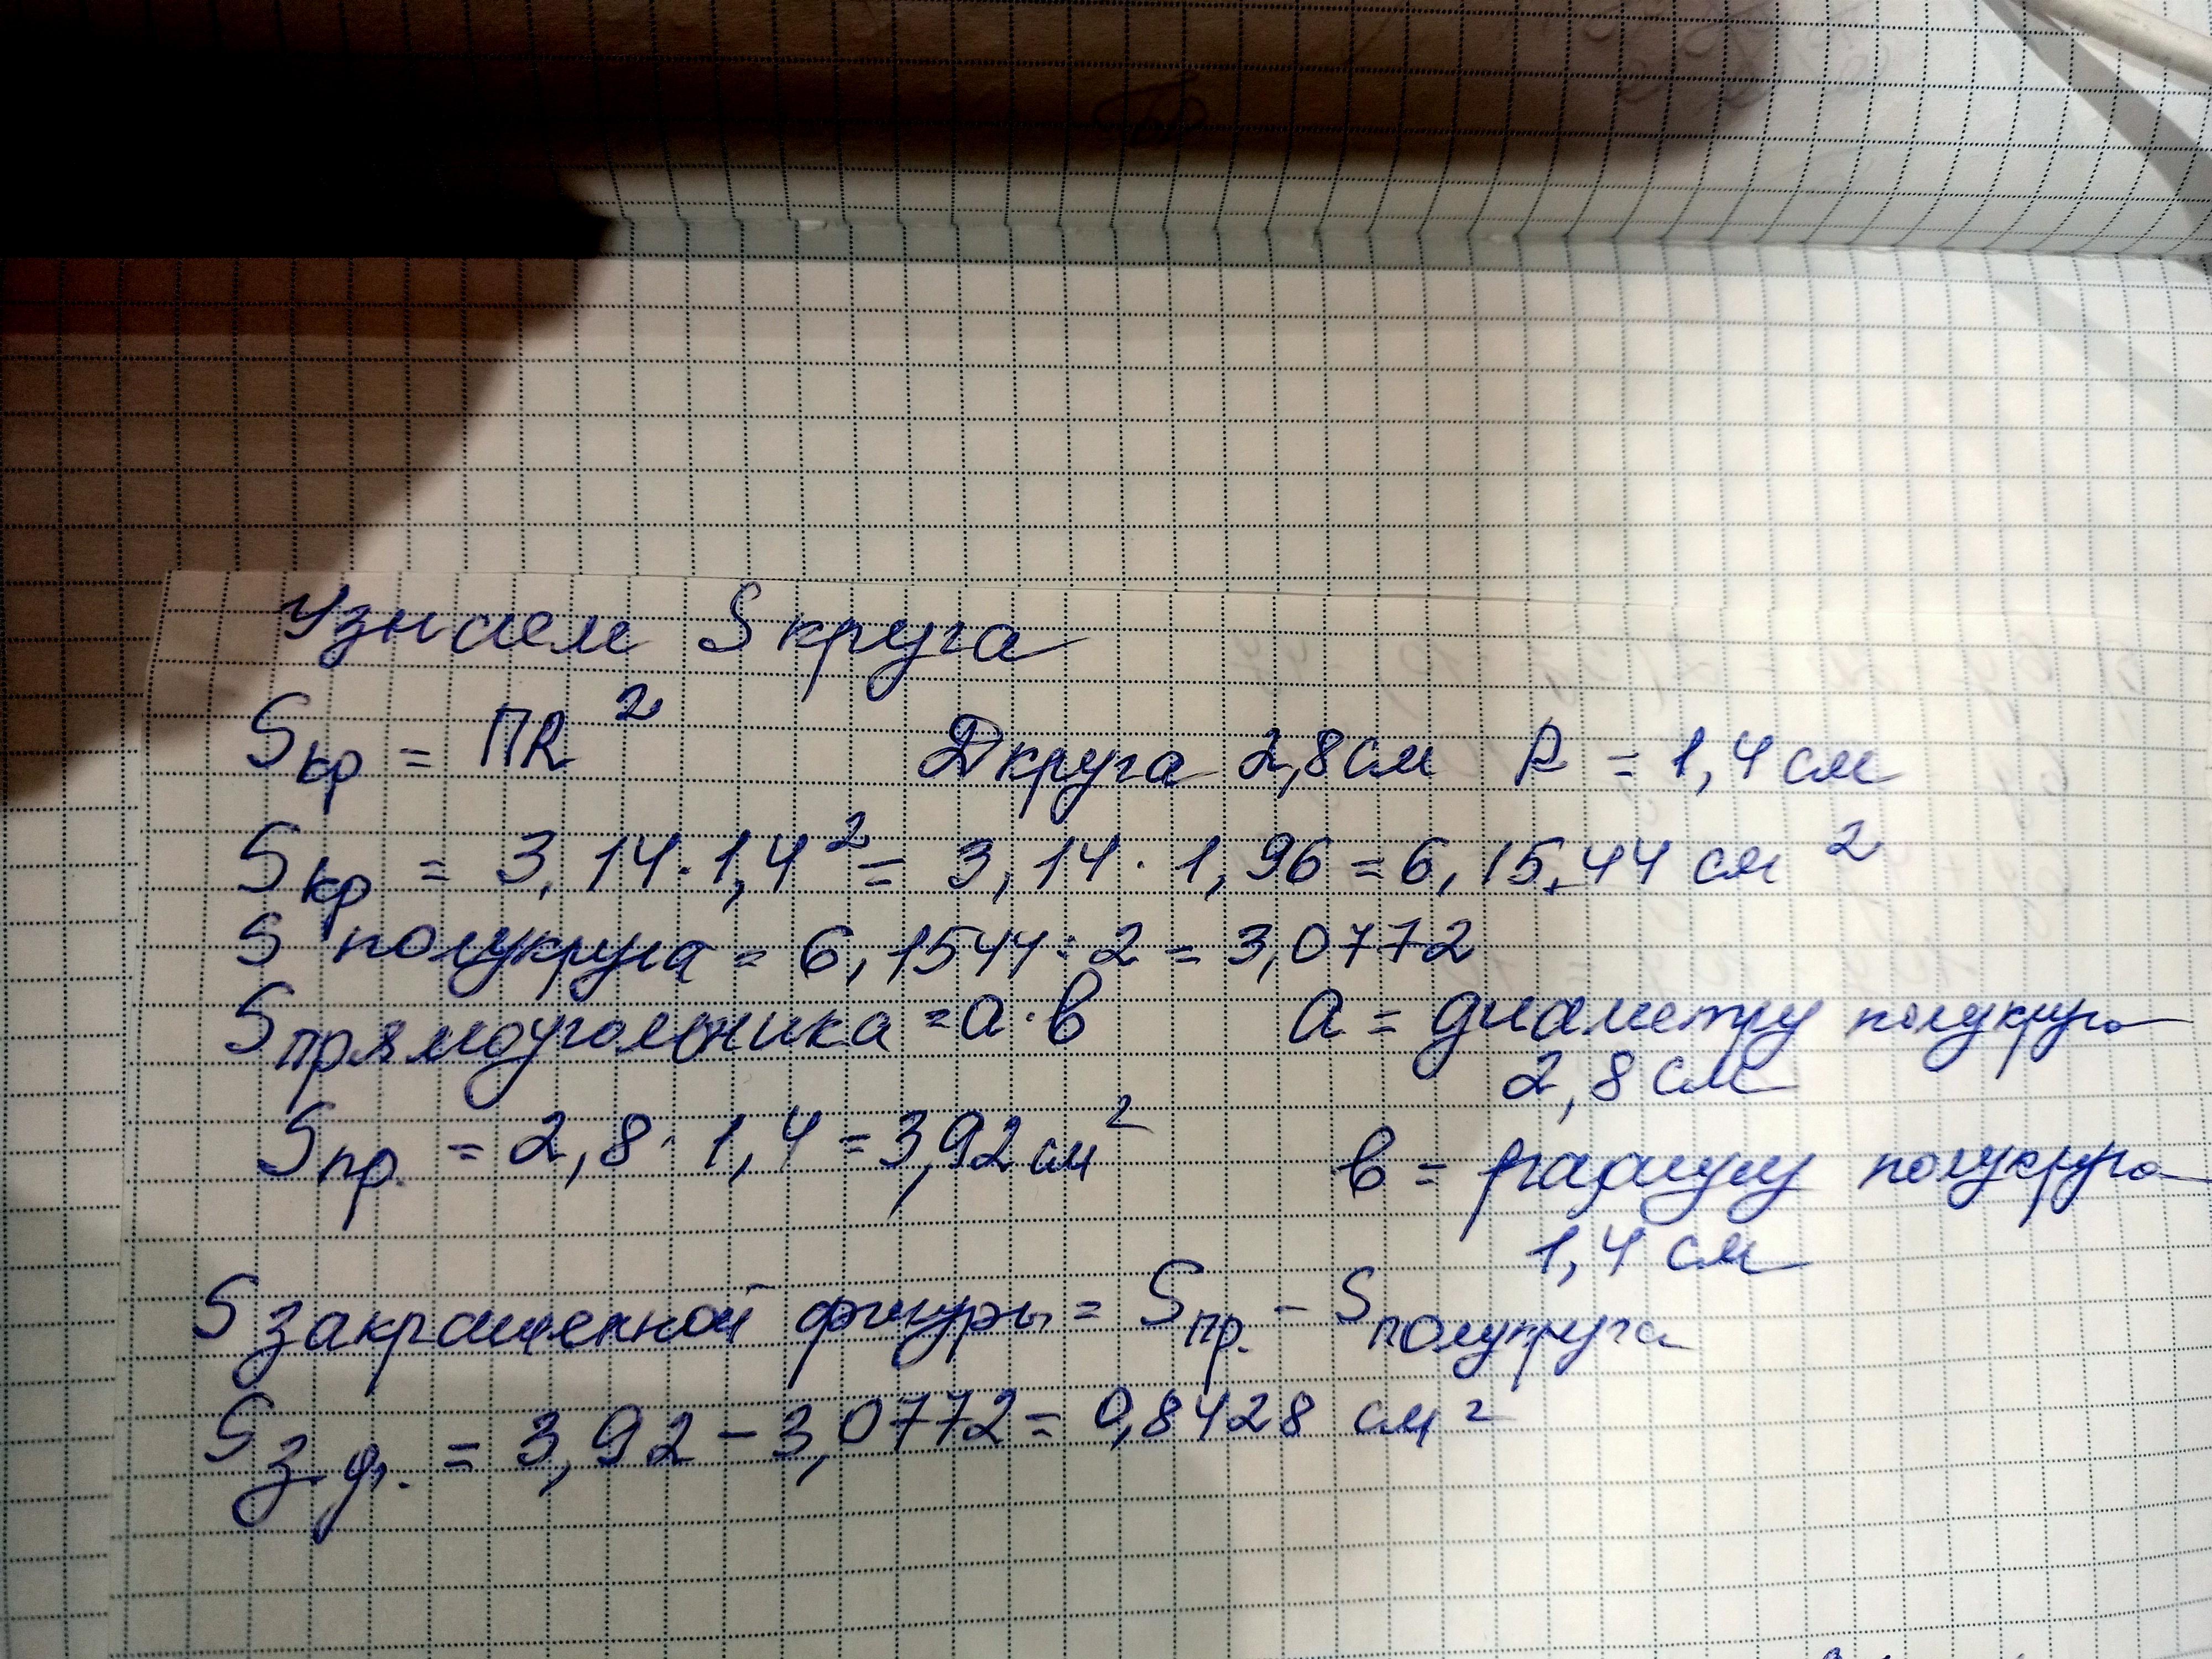 Узнаем S круга
Sкр = ПR² Д круга 2,8 см R = 1,4 см
Sкр = 3,14·1,4² = 3,14·1,96 = 6,15,44 см²
S полукруга = 6,1544:2 = 3,0772
Sпрямоугольника = а·в а = диаметру полукруга
2,8 см
Sпр. = 2,8·1,4 = 3,92 см²
в = радиусу полукруга
1,4 см
S закрашенной фигуры = Sпр. - Sполукруга
Sз.ф. = 3,92 - 3,0772 = 0,8428 см²